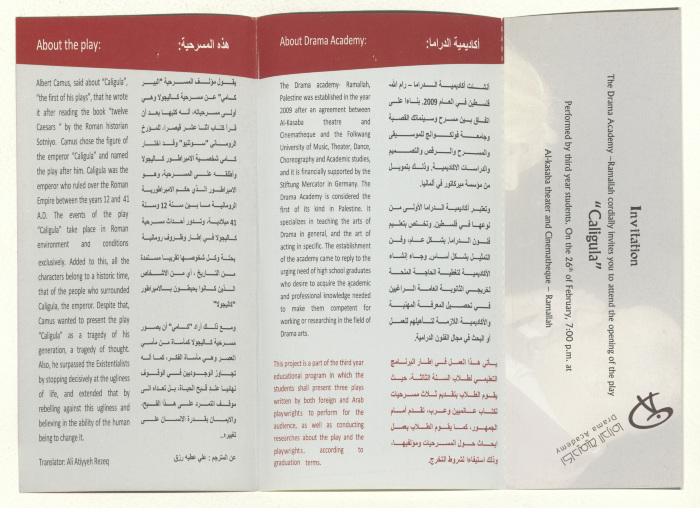 About the play:
هذه المسرحية:
Albert Camus, said about "Caligula",
"the first of his plays", that he wrote
it after reading the book "twelve
Caesars " by the Roman historian
Sotniyo. Camus chose the figure of
the emperor "Caligula" and named
the play after him. Caligula was the
emperor who ruled over the Roman
Empire between the years 12 and 41
A.D. The events of the play
"Caligula" take place in Roman
environment and conditions
exclusively. Added to this, all the
characters belong to a historic time,
that of the people who surrounded
Caligula, the emperor. Despite that,
Camus wanted to present the play
"Caligula" as a tragedy of his
generation, a tragedy of thought.
Also, he surpassed the Existentialists
by stopping decisively at the ugliness
of life, and extended that by
rebelling against this ugliness and
believing in the ability of the human
being to change it.
Translator: Ali Atiyyeh Rezeq
يقول مؤلف المسرحية "البير
كامي" عن مسرحية كاليجولا وهي
أولى مسرحياته، أنه كتبها بعد أن
قرأ كتاب اثنا عشر قيصرا، للمؤرخ
الروماني "سوتنيو" وقد اختار
كامي شخصية الامبراطور كاليجولا
وأطلقه على المسرحية، وهو
الامبراطور الذي حكم الامبراطورية
الرومانية ما بين سنة 12 وسنة
41 ميلادية، وتدور أحداث مسرحية
كاليجولا في إطار وظروف رومانية
بحتة وكل شخوصها تقريبا مستمدة
من التاريخ ، أي من الاشخاص
الذين كانوا يحيطون بالامبراطور
"كاليجولا"
ومع ذلك أراد "كامي" أن يصور
مسرحية كاليجولا كمأساة من مآسي
العصر وهي مأساة الفكر، كما أنه
تجاوز الوجوديين في الوقوف
نهائيا عند قبح الحياة، بل تعداه الى
موقف التمرد على هذا القبح،
والايمان بقدرة الانسان على
تغييره..
عن المترجم : علي عطيه رزق
About Drama Academy:
أكاديمية الدراما:
The Drama academy- Ramallah,
Palestine was established in the year
2009 after an agreement between
Al-Kasaba theatre and
Cinematheque and the Folkwang
University of Music, Theater, Dance,
Choreography and Academic studies,
and it is financially supported by the
Stiftung Mercator in Germany. The
Drama Academy is considered the
first of its kind in Palestine. It
specializes in teaching the arts of
Drama in general, and the art of
acting in specific. The establishment
of the academy came to reply to the
urging need of high school graduates
who desire to acquire the academic
and professional knowledge needed
to make them competent for
working or researching in the field of
Drama arts.
This project is a part of the third year
educational program in which the
students shall present three plays
written by both foreign and Arab
playwrights to perform for the
audience, as well as conducting
researches about the play and the
playwrights, according to
graduation terms.
أنشئت أكاديمية الدراما – رام الله
فلسطين في العام 2009، بناءا على
اتفاق بين مسرح وسينماتك القصبة
وجامعة فولكوانج للموسيقى
والمسرح والرقص والتصميم
والدراسات الاكاديمية، وذلك بتمويل
من مؤسسة ميركاتور في ألمانيا.
وتعتبر أكاديمية الدراما الأولى من
نوعها في فلسطين، وتختص بتعليم
فنون الدراما، بشكل عام، وفن
التمثيل بشكل أساس، وجاء إنشاء
الأكاديمية لتغطية الحاجة الملحة
لخريجي الثانوية العامة الراغبين
في تحصيل المعرفة المهنية
والأكاديمية اللازمة لتأهيلهم للعمل
أو البحث في مجال الفنون الدرامية.
يأتي هذا العمل في اطار البرنامج
التعليمي لطلاب السنة الثالثة، حيث
يقوم الطلاب بتقديم ثلاث مسرحيات
لكتاب عالميين وعرب، تقدم أمام
الجمهور، كما يقوم الطلاب بعمل
أبحاث حول المسرحيات ومؤلفيها،
وذلك استيفاءا لشروط التخرج.
Invitation
The Drama Academy –Ramallah cordially invites you to attend the opening of the play
"Caligula"
Performed by third year students. On the 26th of February, 7:00 p.m. at
Al-kasaba theater and Cinematheque – Ramallah
أكاديمية الدراما
Drama Academy